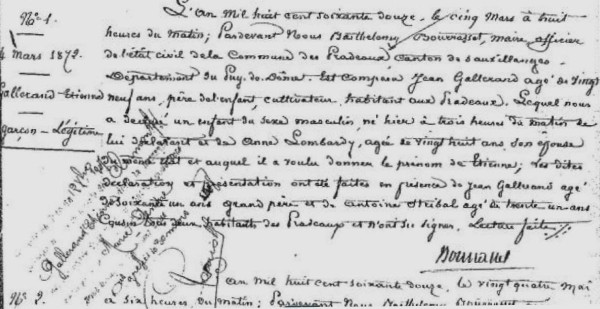 Nº 1.
4 mars 1872.
Gallerand Etienne
garçon - Légitime
L'An Mil huit cent soixante douze, le cinq Mars à huit
heures du matin; Pardevant Nous Barthelomy Bourrasset, maire officier
de l'état civil de la Commune des Pradeaux Canton de Sauxillanges
Département du Puy-de-Dôme. Est comparu Jean Gallerand agé de vingt
neuf ans, père de l'enfant, cultivateur, habitant aux Pradeaux. Lequel nous
a déclaré un enfant du sexe masculin, né hier à trois heures du matin de
lui déclarant et de Anne Lombardy, agée de vingt huit ans, son épouse
du même état et auquel il a voulu donner le prénom de Etienne; Les dites
déclaration et présentation ont été faites en présence de Jean Gallerand agé
de soixante un ans grand père et de Antoine agé de trente un ans
Cousin tous deux habitants des Pradeaux et n'ont su signer. Lecture faite.
Gallerand Etienne
Nº 2.
An mil huit cent soixante douze, le vingt quatre Mai
à six heures du matin; Pardevant Nous Barthelomy